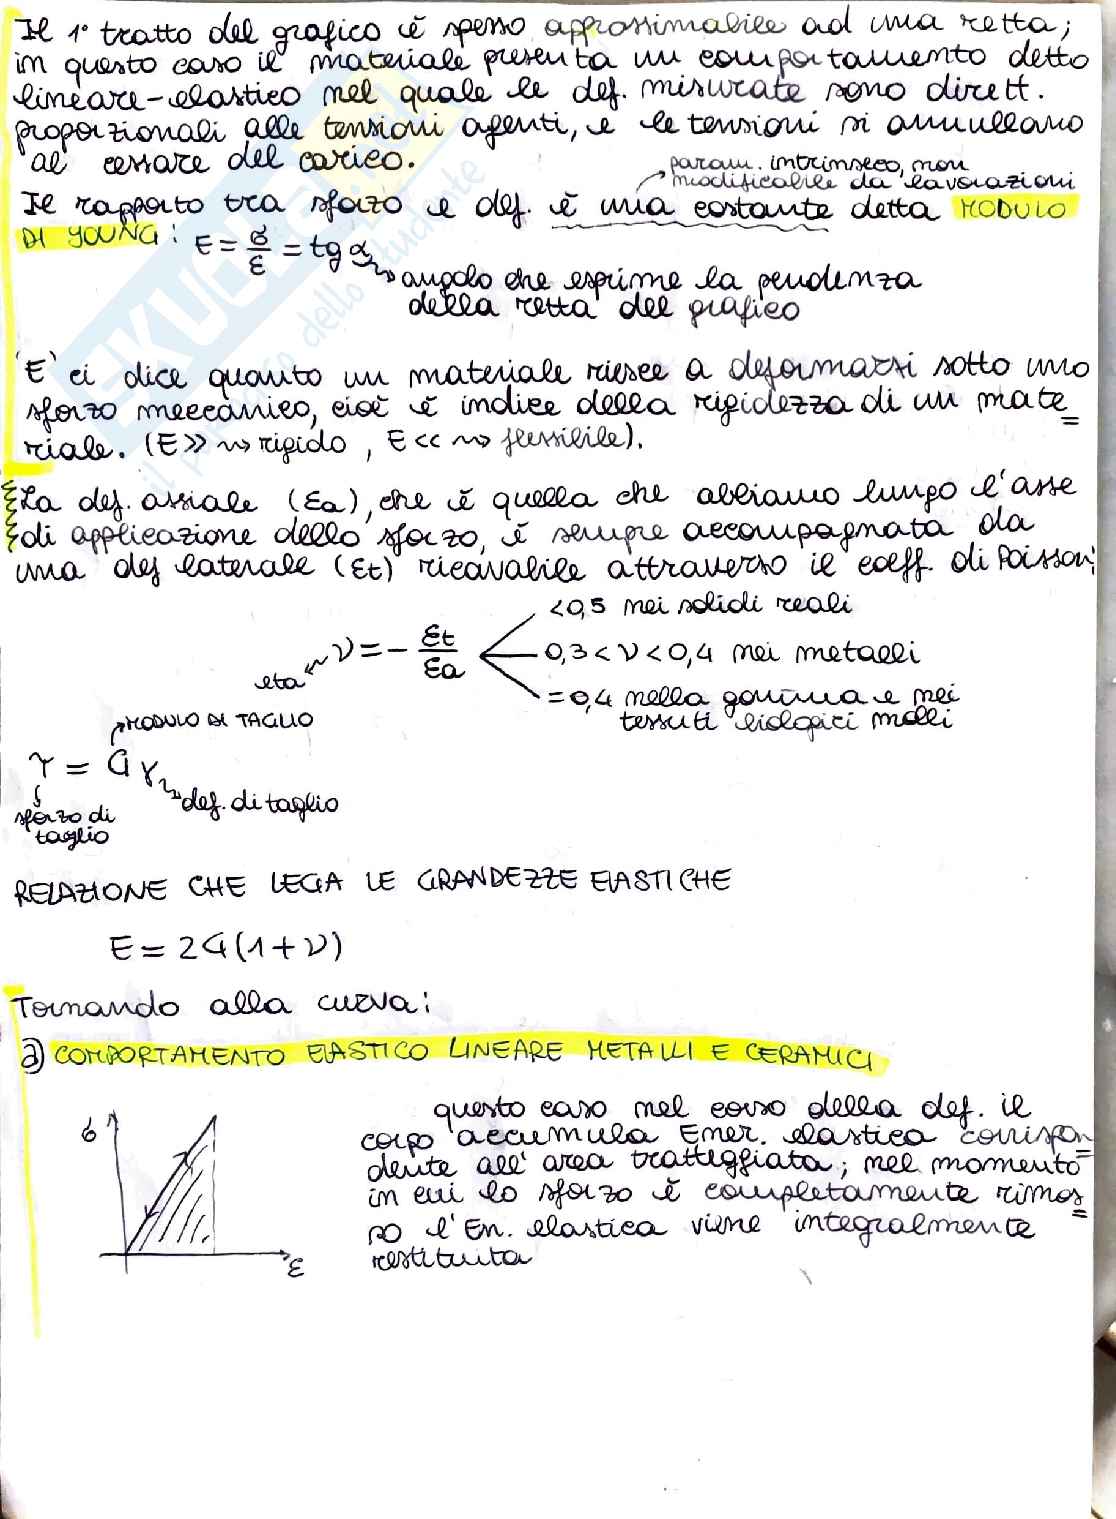 Il 1° tratto del grafico è spesso approssimabile ad una retta;
in questo caso il materiale presenta un comportamento detto
lineare-elastico nel quale le def. misurate sono dirett.
proporzionali alle tensioni agenti, e le tensioni si annullano
al cessare del carico.
param. intrinseco, non
modificabile da lavorazioni
Il rapporto tra sforzo e def. è una costante detta MODULO
DI YOUNG: E = σ/ε = tg α
angolo che esprime la pendenza
della retta del grafico
'E' ci dice quanto un materiale riesce a deformarsi sotto uno
sforzo meccanico, cioè è indice della rigidezza di un mate=
riale. (E >> ⇝ rigido, E << ⇝ flessibile).
La def. assiale (εa), che è quella che abbiamo lungo l'asse
di applicazione dello sforzo, è sempre accompagnata da
una def laterale (εt) ricavabile attraverso il coeff. di Poisson:
<0,5 nei solidi reali
eta ν = - εt/εa 0,3 < ν < 0,4 nei metalli
= 0,4 nella gomma e nei
tessuti biologici molli
MODULO DI TAGLIO
τ = G γ
def. di taglio
sforzo di
taglio
RELAZIONE CHE LEGA LE GRANDEZZE ELASTICHE
E = 2G(1+ν)
Tornando alla curva:
a) COMPORTAMENTO ELASTICO LINEARE METALLI E CERAMICI
σ
ε
questo caso nel corso della def. il
corpo accumula Ener. elastica corrispon=
dente all'area tratteggiata; nel momento
in cui lo sforzo è completamente rimos=
so l'En. elastica viene integralmente
restituita
SKUOLA.net
il paradiso dello studente